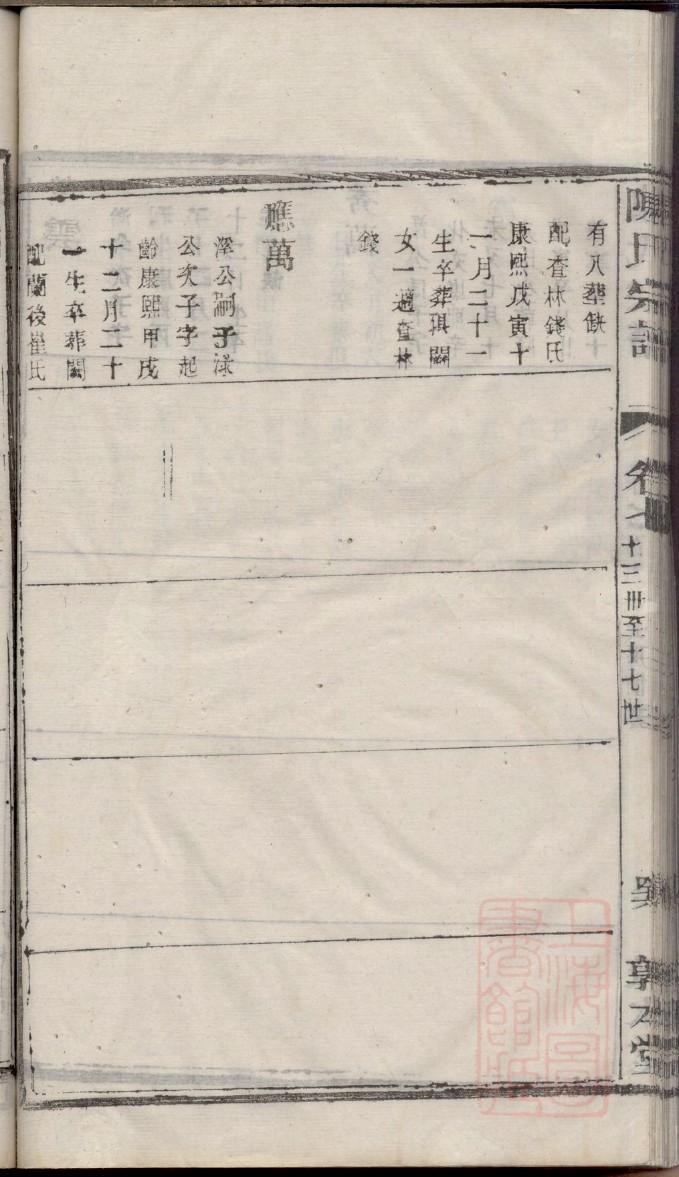 陳氏宗譜
卷七
十三世至十七世
敦本堂
有八塟缺
配查林錢氏
康熙戊寅十
一月二十一
生卒葬琪闕
女一適查林
錢
應萬
溪公嗣子淥
公次子字起
齡康熙甲戌
十二月二十
一生卒葬闕
配蘭後崔氏
上海圖
書館藏